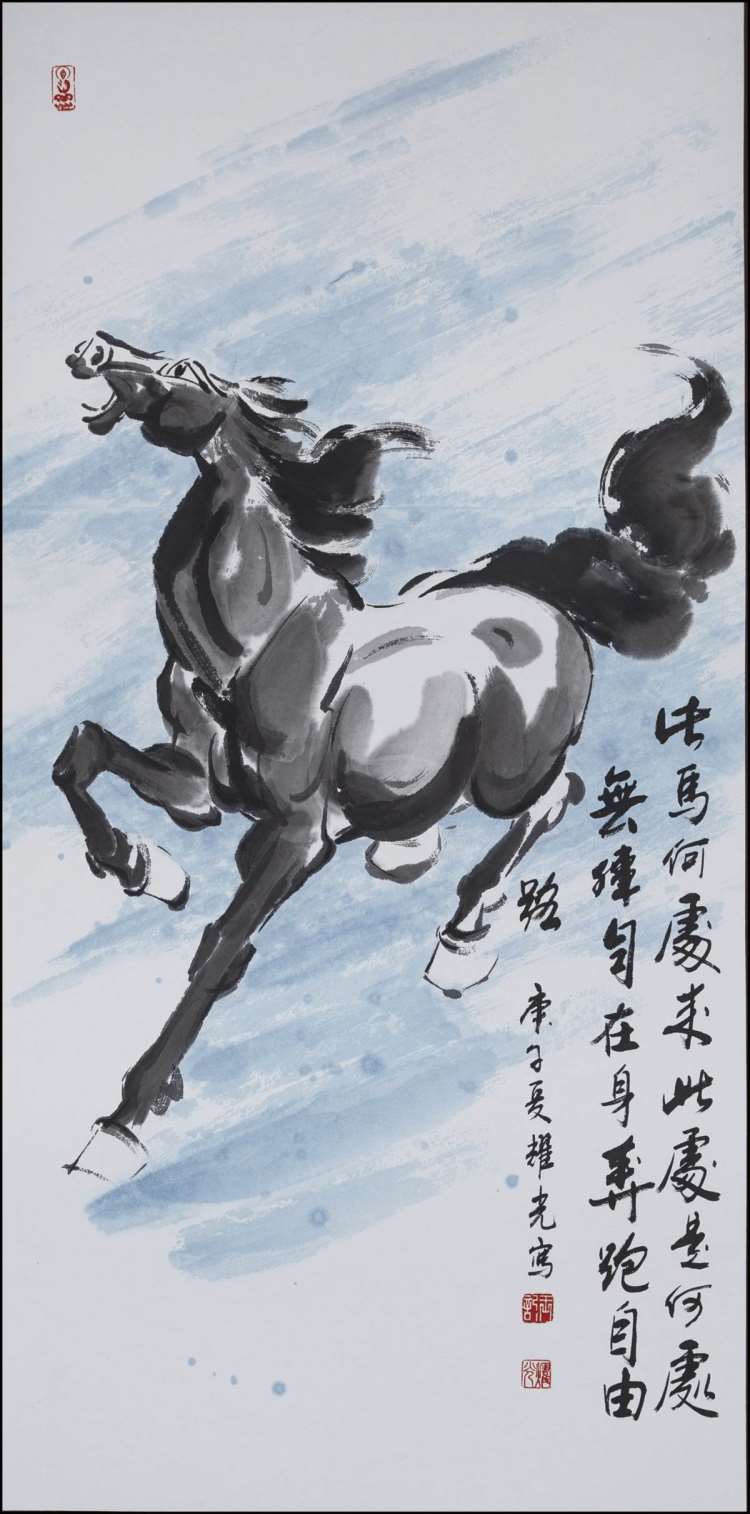 此馬何處來此處是何處
無繮自在身奔跑自由
路
庚子夏耀光寫
耀光